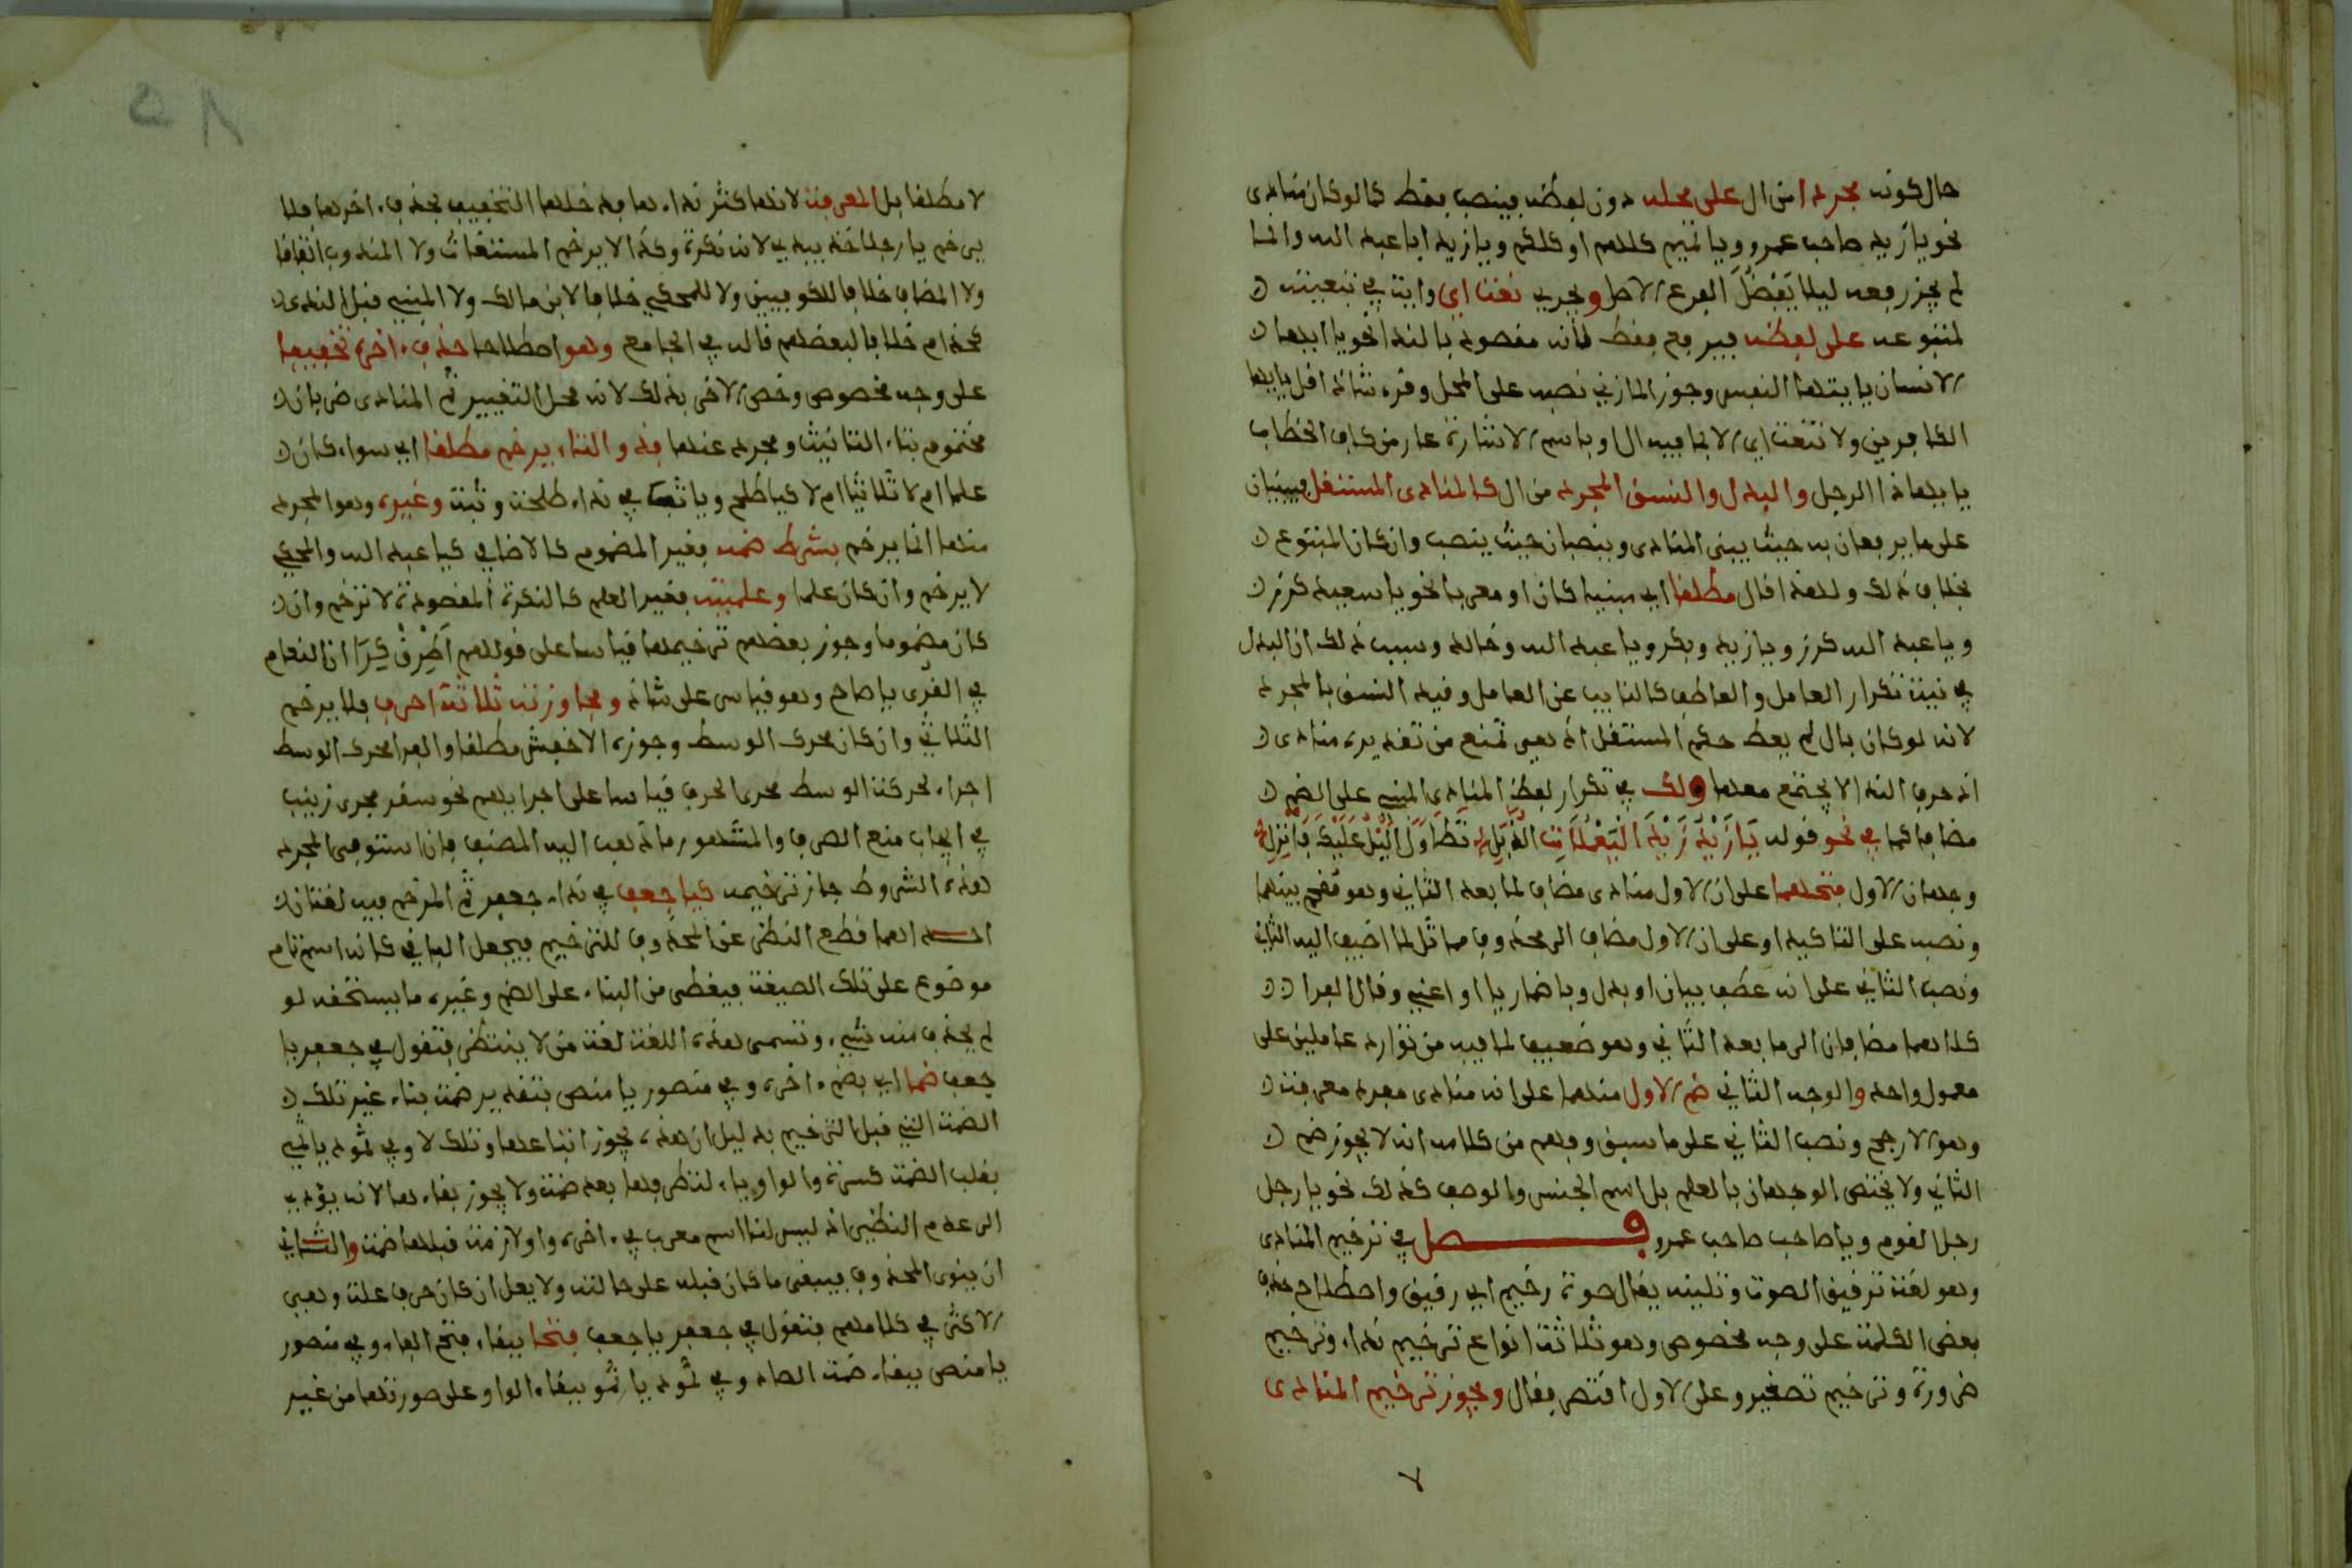 حال كونه مجردا من ال على محله دون لفظه فينصب فقط كما لو كان منادى
نحو يا زيد صاحب عمرو ويا تميم كلهم او كلكم ويا زيد ابا عبد الله وانما
لم يجز رفعه ليلا يَفْضُلَ الفرع الاصل ويجري نعت اي وايت في تبعيته
لمتبوعه على لفظه فيرفع فقط لانه مقصود بالندا نحو يا ايها
الانسان يا ايتها النفس وجوز المازني نصبه على المحل وقرئ شاذا قل يا ايها
الكافرين ولا تنعت اي الا بما فيه ال او باسم الاشارة عار من كاف الخطاب
يا ايها ذا الرجل والبدل والنسق المجرد من ال كالمنادى المستقل فيبنيان
على ما يرفعان به حيث يبنى المنادى وينصبان حيث ينصب وان كان المتبوع
بخلاف ذلك ولهذا قال مطلقا اي مبنيا كان او معربا نحو يا سعيد كرز
ويا عبد الله كرز ويا زيد وبكر ويا عبد الله وخالد وسبب ذلك ان البدل
في نية تكرار العامل والعاطف كالنايب عن العامل وقيد النسق بالمجرد
لانه لو كان بال لم يعط حكم المستقل اذ هي تمنع من تقديره منادى
اذ حرف الندا لا يجتمع معها ولك في تكرار لفظ المنادى المبني على الضم
مضافا كما في نحو قوله يَا زَيْدَ زَيْدَ الْيَعْمَلَاتِ الذُّبَّلِ تَطَاوَلَ اللَّيْلُ عَلَيْكَ فَانْزِلِ
وجهان الاول فتحهما على ان الاول منادى مضاف لما بعد الثاني وهو مقحم بينهما
ونصبه على التاكيد او على ان الاول مضاف الى محذوف مماثل لما اضيف اليه الثاني
ونصب الثاني على انه عطف بيان او بدل وباضمار يا او اعني وقال الفرا
كلاهما مضافان الى ما بعد الثاني وهو ضعيف لما فيه من توارد عاملين على
معمول واحد والوجه الثاني ضم الاول منهما على انه منادى مفرد معرفة
وهو الارجح ونصب الثاني على ما سبق وفهم من كلامه انه لا يجوز ضم
الثاني ولا يختص الوجهان بالعلم بل اسم الجنس والوصف كذلك نحو يا رجل
رجل القوم ويا صاحب صاحب عمرو فصل في ترخيم المنادى
وهو لغة ترقيق الصوت وتليينه يقال صوت رخيم اي رقيق واصطلاحا حذف
بعض الكلمة على وجه مخصوص وهو ثلاثة انواع ترخيم نداء وترخيم
ضرورة وترخيم تصغير وعلى الاول اقتصر فقال ويجوز ترخيم المنادى
٧
٥٨
لا مطلقا بل المعرفة لانها كثر نداءها فدخلها التخفيف بحذف اخرها فلا
يرخم يا رجلا خذ بيدي لانه نكرة وكذا لا يرخم المستغاث ولا المندوب اتفاقا
ولا المضاف خلافا للكوفيين ولا للمحكي خلافا لابن مالك ولا المبني قبل الندى
كحذام خلافا لبعضهم قاله في الجامع وهو اصطلاحا حذف اخره تخفيفا
على وجه مخصوص وخص الاخر بذلك لانه محل التغيير ثم المنادى ضربان
مختوم بتاء التانيث ومجرد عنها فذو التاء يرخم مطلقا اي سواء كان
علما ام لا ثلاثيا ام لا كيا طلح ويا ثب في نداء طلحة وثبة وغيره وهو المجرد
منها انما يرخم بشرط ضمه فغير المضموم كالاضافي كيا عبد الله والمحكي
لا يرخم وان كان علما وعلميته فغير العلم كالنكرة المقصودة لا ترخم وان
كان مضموما وجوز بعضهم ترخيمها قياسا على قولهم اَطْرِقْ كَرَا ان النعام
في القرى يا صاح وهو قياس على شاذ ومجاوزته ثلاثة احرف فلا يرخم
الثلاثي وان كان محرك الوسط وجوزه الاخفش مطلقا والفرا محرك الوسط
اجراء لحركة الوسط مجرى الحرف قياسا على اجرايهم نحو سقر مجرى زينب
في ايجاب منع الصرف والمشهور ما ذهب اليه المصنف فان استوفى المجرد
هذه الشروط جاز ترخيمه كيا جعف في نداء جعفر ثم المرخم فيه لغتان
احداهما قطع النظر عن المحذوف للترخيم فيجعل الباقي كانه اسم تام
موضوع على تلك الصيغة فيعطى من البناء على الضم وغيره ما يستحقه لو
لم يحذف منه شيء وتسمى هذه اللغة لغة من لا ينتظر فتقول في جعفر يا
جعف ضما اي بضم اخره وفي منصور يا منص بتقدير ضمة بناء غير تلك
الضمة التي قبل الترخيم بدليل ان هذه يجوز اتباعها وتلك لا وفي ثمود يا ثمي
بقلب الضمة كسرة والواو ياء لتطرفها بعد ضمة ولا يجوز بقاءها لانه يؤدي
الى عدم النظير اذ ليس لنا اسم معرب في اخره واو لازمة قبلها ضمة والثاني
ان ينوى المحذوف فيبقى ما كان قبله على حالته ولا يعل ان كان حرف علة وهي
الاكثر في كلامهم فتقول في جعفر يا جعف فتحا ببقاء فتح الفاء وفي منصور
يا منص ببقاء ضمة الصاد وفي ثمود يا ثمو ببقاء الواو على صورتها من غير